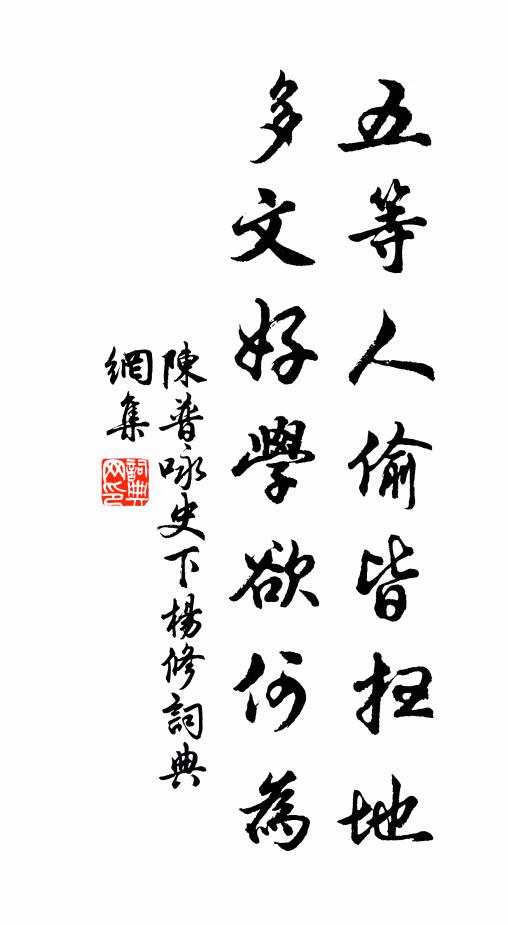 五等人偷皆扫地
多文好學欲何為
陳普咏史下楊修詞典
網集
詞典
网印